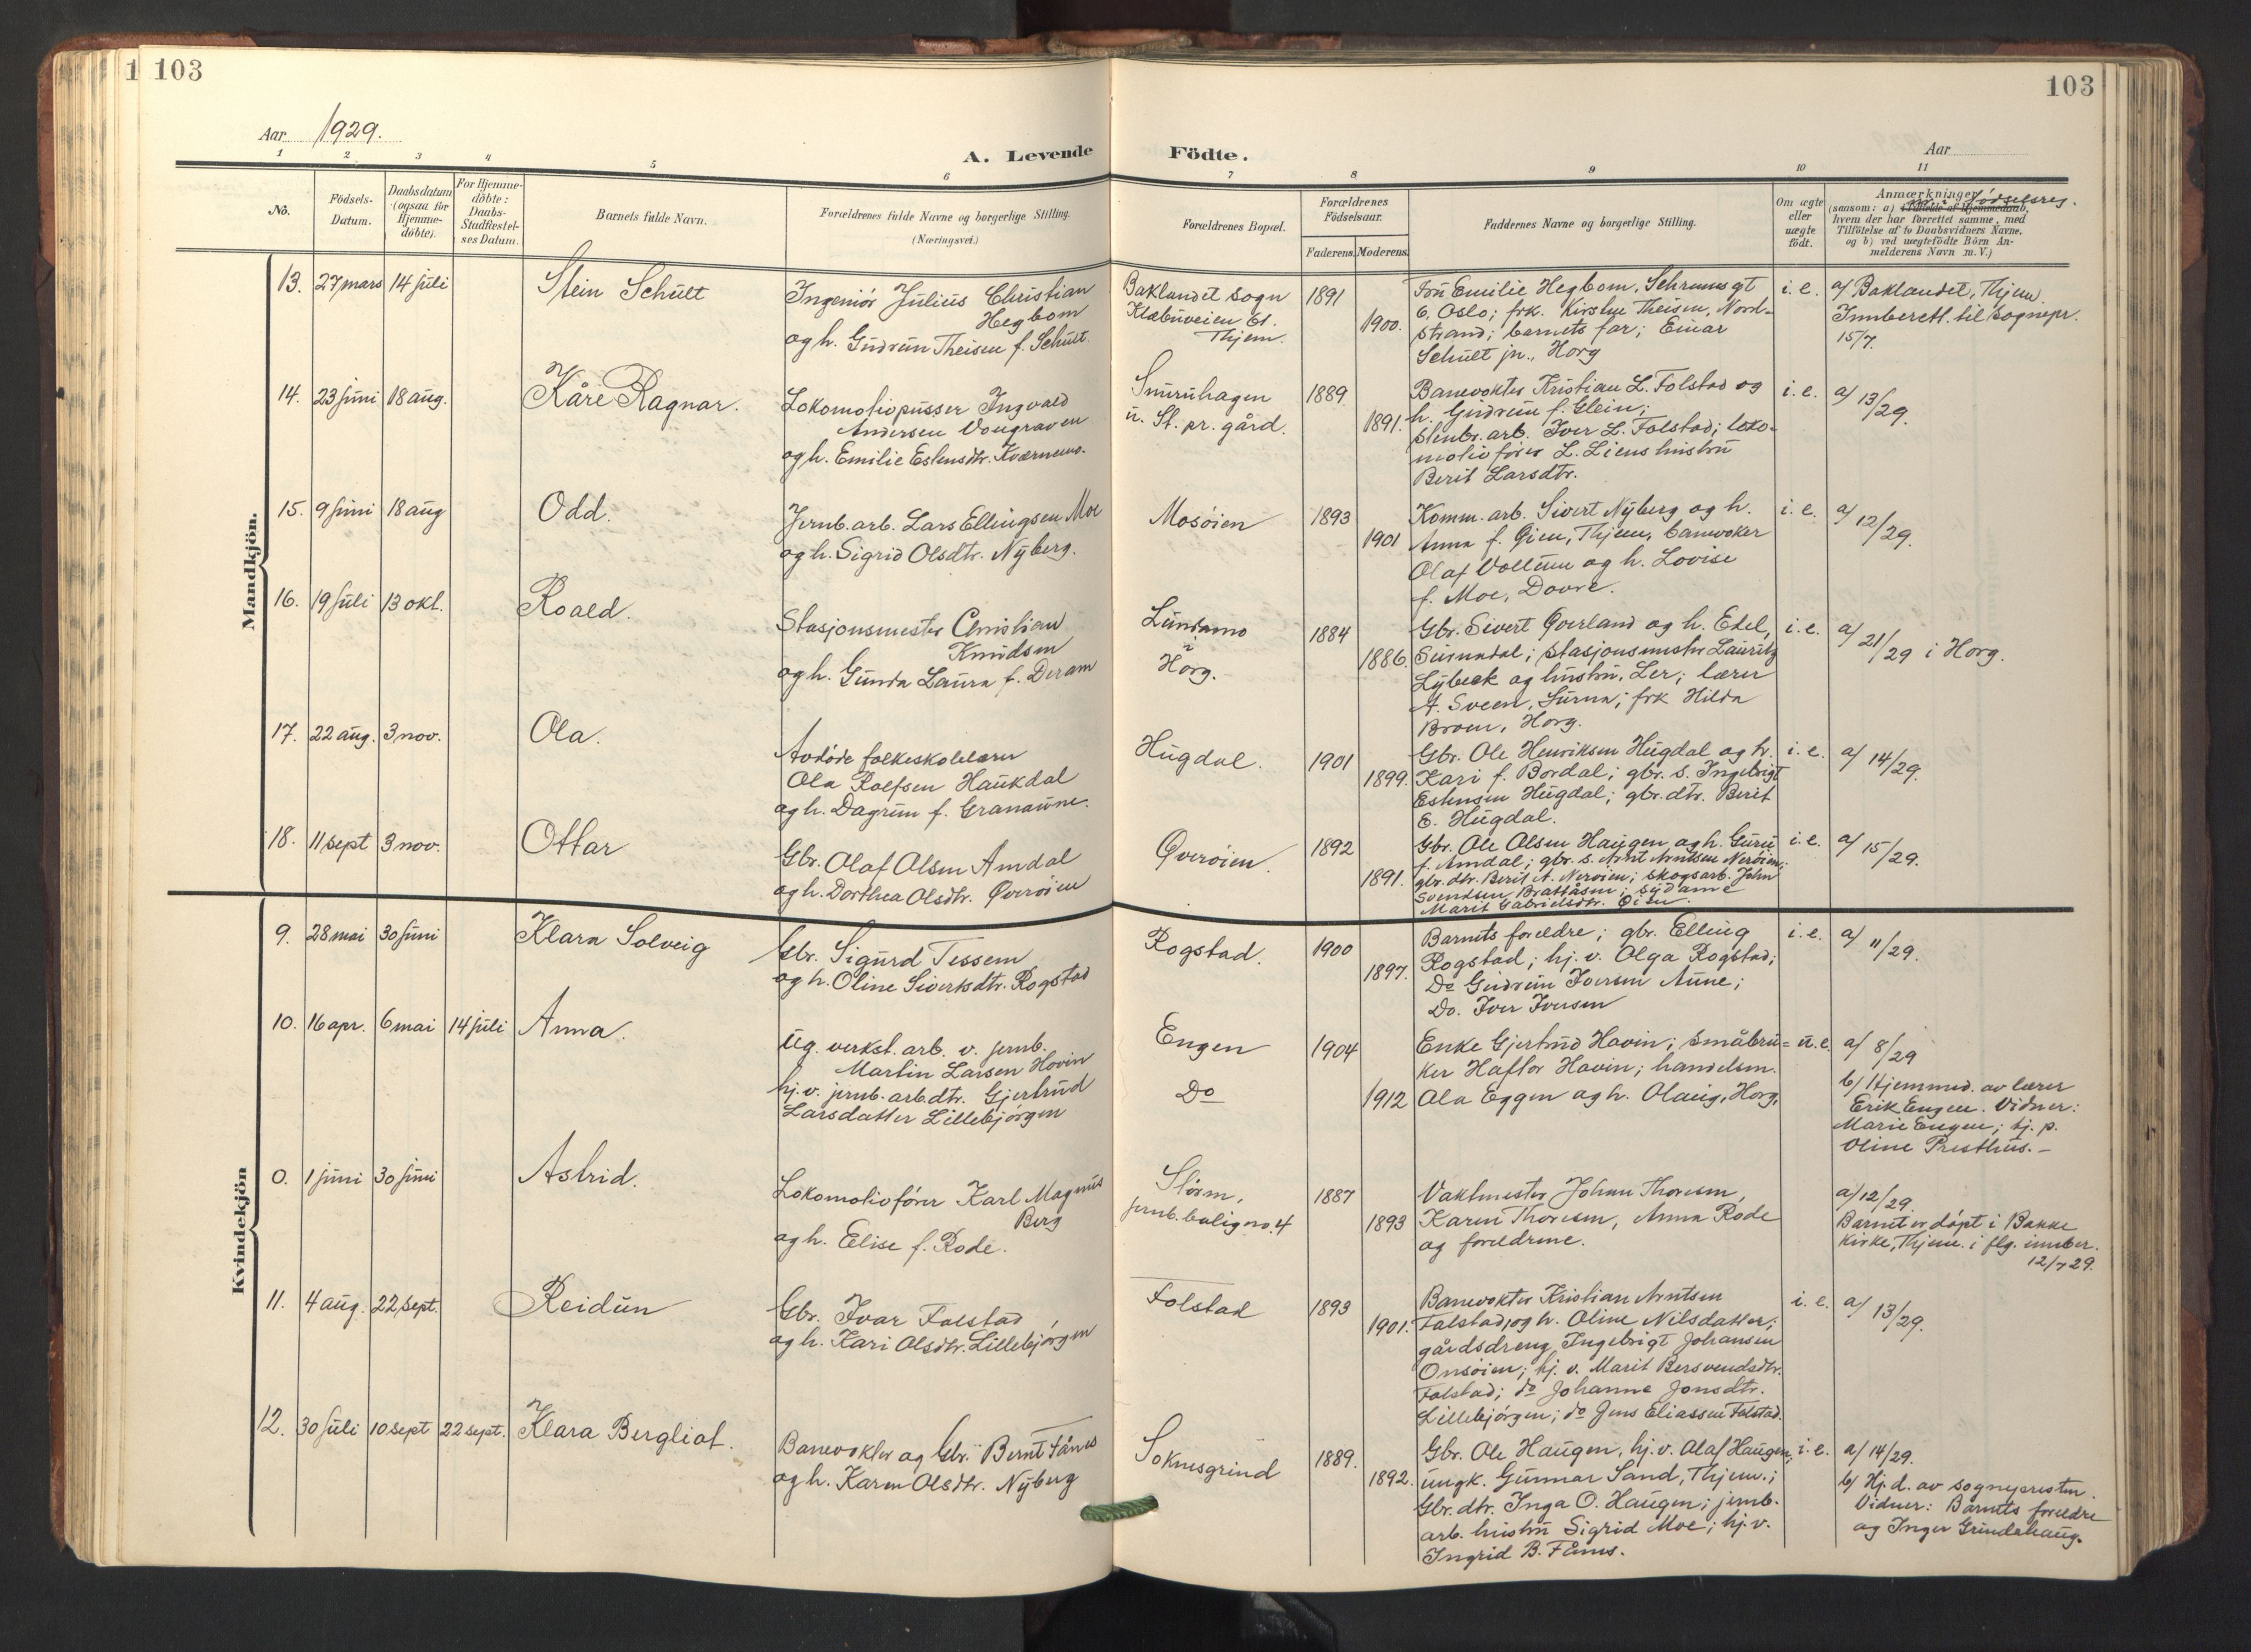 1 103
103
Aar 1929.
A. Levende
Födte.
Aar
1 2 3 4 5 6
7 8 9 10 11
No.
Födsels-
Datum.
Daabsdatum
(ogsaa for
Hjemme-
döbte).
For Hjemme-
döbte:
Daabs-
Stadfæstel-
ses Datum.
Barnets fulde Navn.
Forældrenes fulde Navne og borgerlige Stilling.
(Næringsvei.)
Forældrenes Bopæl.
Forældrenes
Födselsaar.
Faderens. Moderens.
Faddernes Navne og borgerlige Stilling.
Om ægte
eller
uægte
födt.
Anmærkninger
nr. i fødselsreg.
(saasom: a) Tilfælde af Hjemmedaab,
hvem der har forrettet samme, med
Tilföielse af to Daabsvidners Navne,
og b) ved uægtefödte Börn An-
melderens Navn m. V.)
Mandkjön.
13. 27 mars 14 juli
Stein Schult
Ingeniør Julius Christian
Hegbom
og h. Gudrun Theisen f. Schult.
Baklandet sogn
Klæbuveien 61.
Thjem.
1891
1900.
Fru Emilie Hegbom, Schrumsgt
6, Oslo; frk. Kirsten Theisen, Nord-
strand; barnets far; Einar
Schult jn., Horg
i. e.
a/ Baklandet, Thjem.
Innberett. til sognepr.
15/7.
14. 23 juni 18 aug.
Kåre Ragnar.
Lokomotivpusser Ingvald
Andersen Vongraven
og h. Emilie Estensdtr. Kværnmo.
Smuruhagen
u. St. pr. gård.
1889.
1891.
Banevokter Kristian L. Folstad og
h. Gudrun f. Glein;
stenbr. arb. Iver L. Folstad; loko-
motivfører L. Liens hustru
Berit Larsdtr.
i. e.
a/ 13/29.
15. 9 juni 18 aug
Odd.
Jernb. arb. Lars Ellingsen Moe
og h. Sigrid Olsdtr. Nyberg.
Mosøien
1893
1901
Komm. arb. Sivert Nyberg og h.
Anna f. Øien, Thjem, banevokter
Olaf Vollum og h. Lovise
f. Moe, Dovre.
i. e.
a/ 12/29.
16. 19 juli 13 okt.
Roald.
Stasjonsmester Christian
Knudsen
og h. Gunda Laura f. Deram
Lundamo
i
Horg.
1884
1886.
Gbr. Sivert Qverland og h. Edel,
Surundal; stasjonsmester Lauritz
Lybeck og hustru, Ler; lærer
A. Sveen, Surna; frk Hilda
Broen, Horg.
i. e.
a/ 21/29 i Horg.
17. 22 aug. 3 nov.
Ola.
Avdøde folkeskolelærer
Ola Rolfsen Haukdal
og h. Dagrun f. Granaune.
Hugdal.
1901
1899.
Gbr. Ole Henriksen Hugdal og h.
Kari f. Bordal; gbr. s. Ingebrigt
Estensen Hugdal; gbr. dtr. Berit
E. Hugdal.
i. e.
a/ 14/29.
18. 11 sept 3 nov.
Ottar
Gbr. Olaf Olsen Amdal
og h. Dorthea Olsdtr. Qverøien
Qverøien.
1892
1891.
Gbr. Ole Olsen Haugen og h. Guru
f. Amdal; gbr. s. Arnt Arntsen Nerøien;
gbr. dtr. Berit A. Nerøien; skogsarb. John
Svendsen Brattåsen; sydame
Marit Gabrielsdtr. Øien.
i. e.
a/ 15/29.
Kvindekjön
9. 28 mai 30 juni
Klara Solveig
Gbr. Sigurd Tessem
og h. Oline Sivertsdtr. Rogstad
Rogstad.
1900
1897.
Barnets foreldre; gbr. Elling
Rogstad; hj. v. Olga Rogstad;
Do Gudrun Iversen Aune;
Do. Iver Iversen
i. e.
a/ 11/29.
10. 16 apr. 6 mai 14 juli
Anna.
Ug. verkst. arb. v. jernb.
Martin Larsen Hovin
hj. v. jernb. arb. dtr. Gjertrud
Larsdatter Lillebjørgen
Engen
Do
1904
1912
Enke Gjertrud Hovin; småbru-
ker Haftor Hovin; handelsm.
Ola Eggen og h. Olaug, Horg,
u. e.
a/ 8/29
b/ Hjemmed. av lærer
Erik Engen. Vidner:
Marie Engen; tj. p.
Oline Presthus. –
0. 1 juni 30 juni
Astrid.
Lokomotivfører Karl Magnus
Berg
og h. Elise f. Rode.
Støren,
jernb. bolig no. 4
1887
1893
Vaktmester Johan Thoresen,
Karen Thoresen, Anna Rode
og foreldrene.
a/ 12/29.
Barnet er døpt i Bakke
Kirke, Thjem. i flg. innber.
12/7 29.
11. 4 aug. 22 sept.
Reidun
Gbr. Ivar Folstad
og h. Kari Olsdtr. Lillebjørgen
Folstad
1893
1901.
Banevokter Kristian Arntsen
Folstad og h. Oline Nilsdatter;
gårdsdreng Ingebrigt Johansen
Onsøien; hj. v. Marit Bersvendsdtr.
Folstad; do Johanna Jonsdtr.
Lillebjørgen; do Jens Eliassen Folstad.
i. e.
a/ 13/29.
12. 30 juli 10 sept 22 sept.
Klara Bergliot.
Banevokter og Gbr. Bernt Fånes
og h. Karen Olsdtr. Nyberg
Soknesgrind
1889.
1892.
Gbr. Ole Haugen, hj. v. Olaf Haugen;
ungk. Gunnar Sand, Thjem.;
Gbr. dtr. Inga O. Haugen; jernb.
arb. hustru Sigrid Moe; hj. v.
Ingrid B. Fånes.
i. e.
a/ 14/29.
b/ Hj. d. av sognepresten.
Vidner: Barnets foreldre
og Inger Grindahaug.